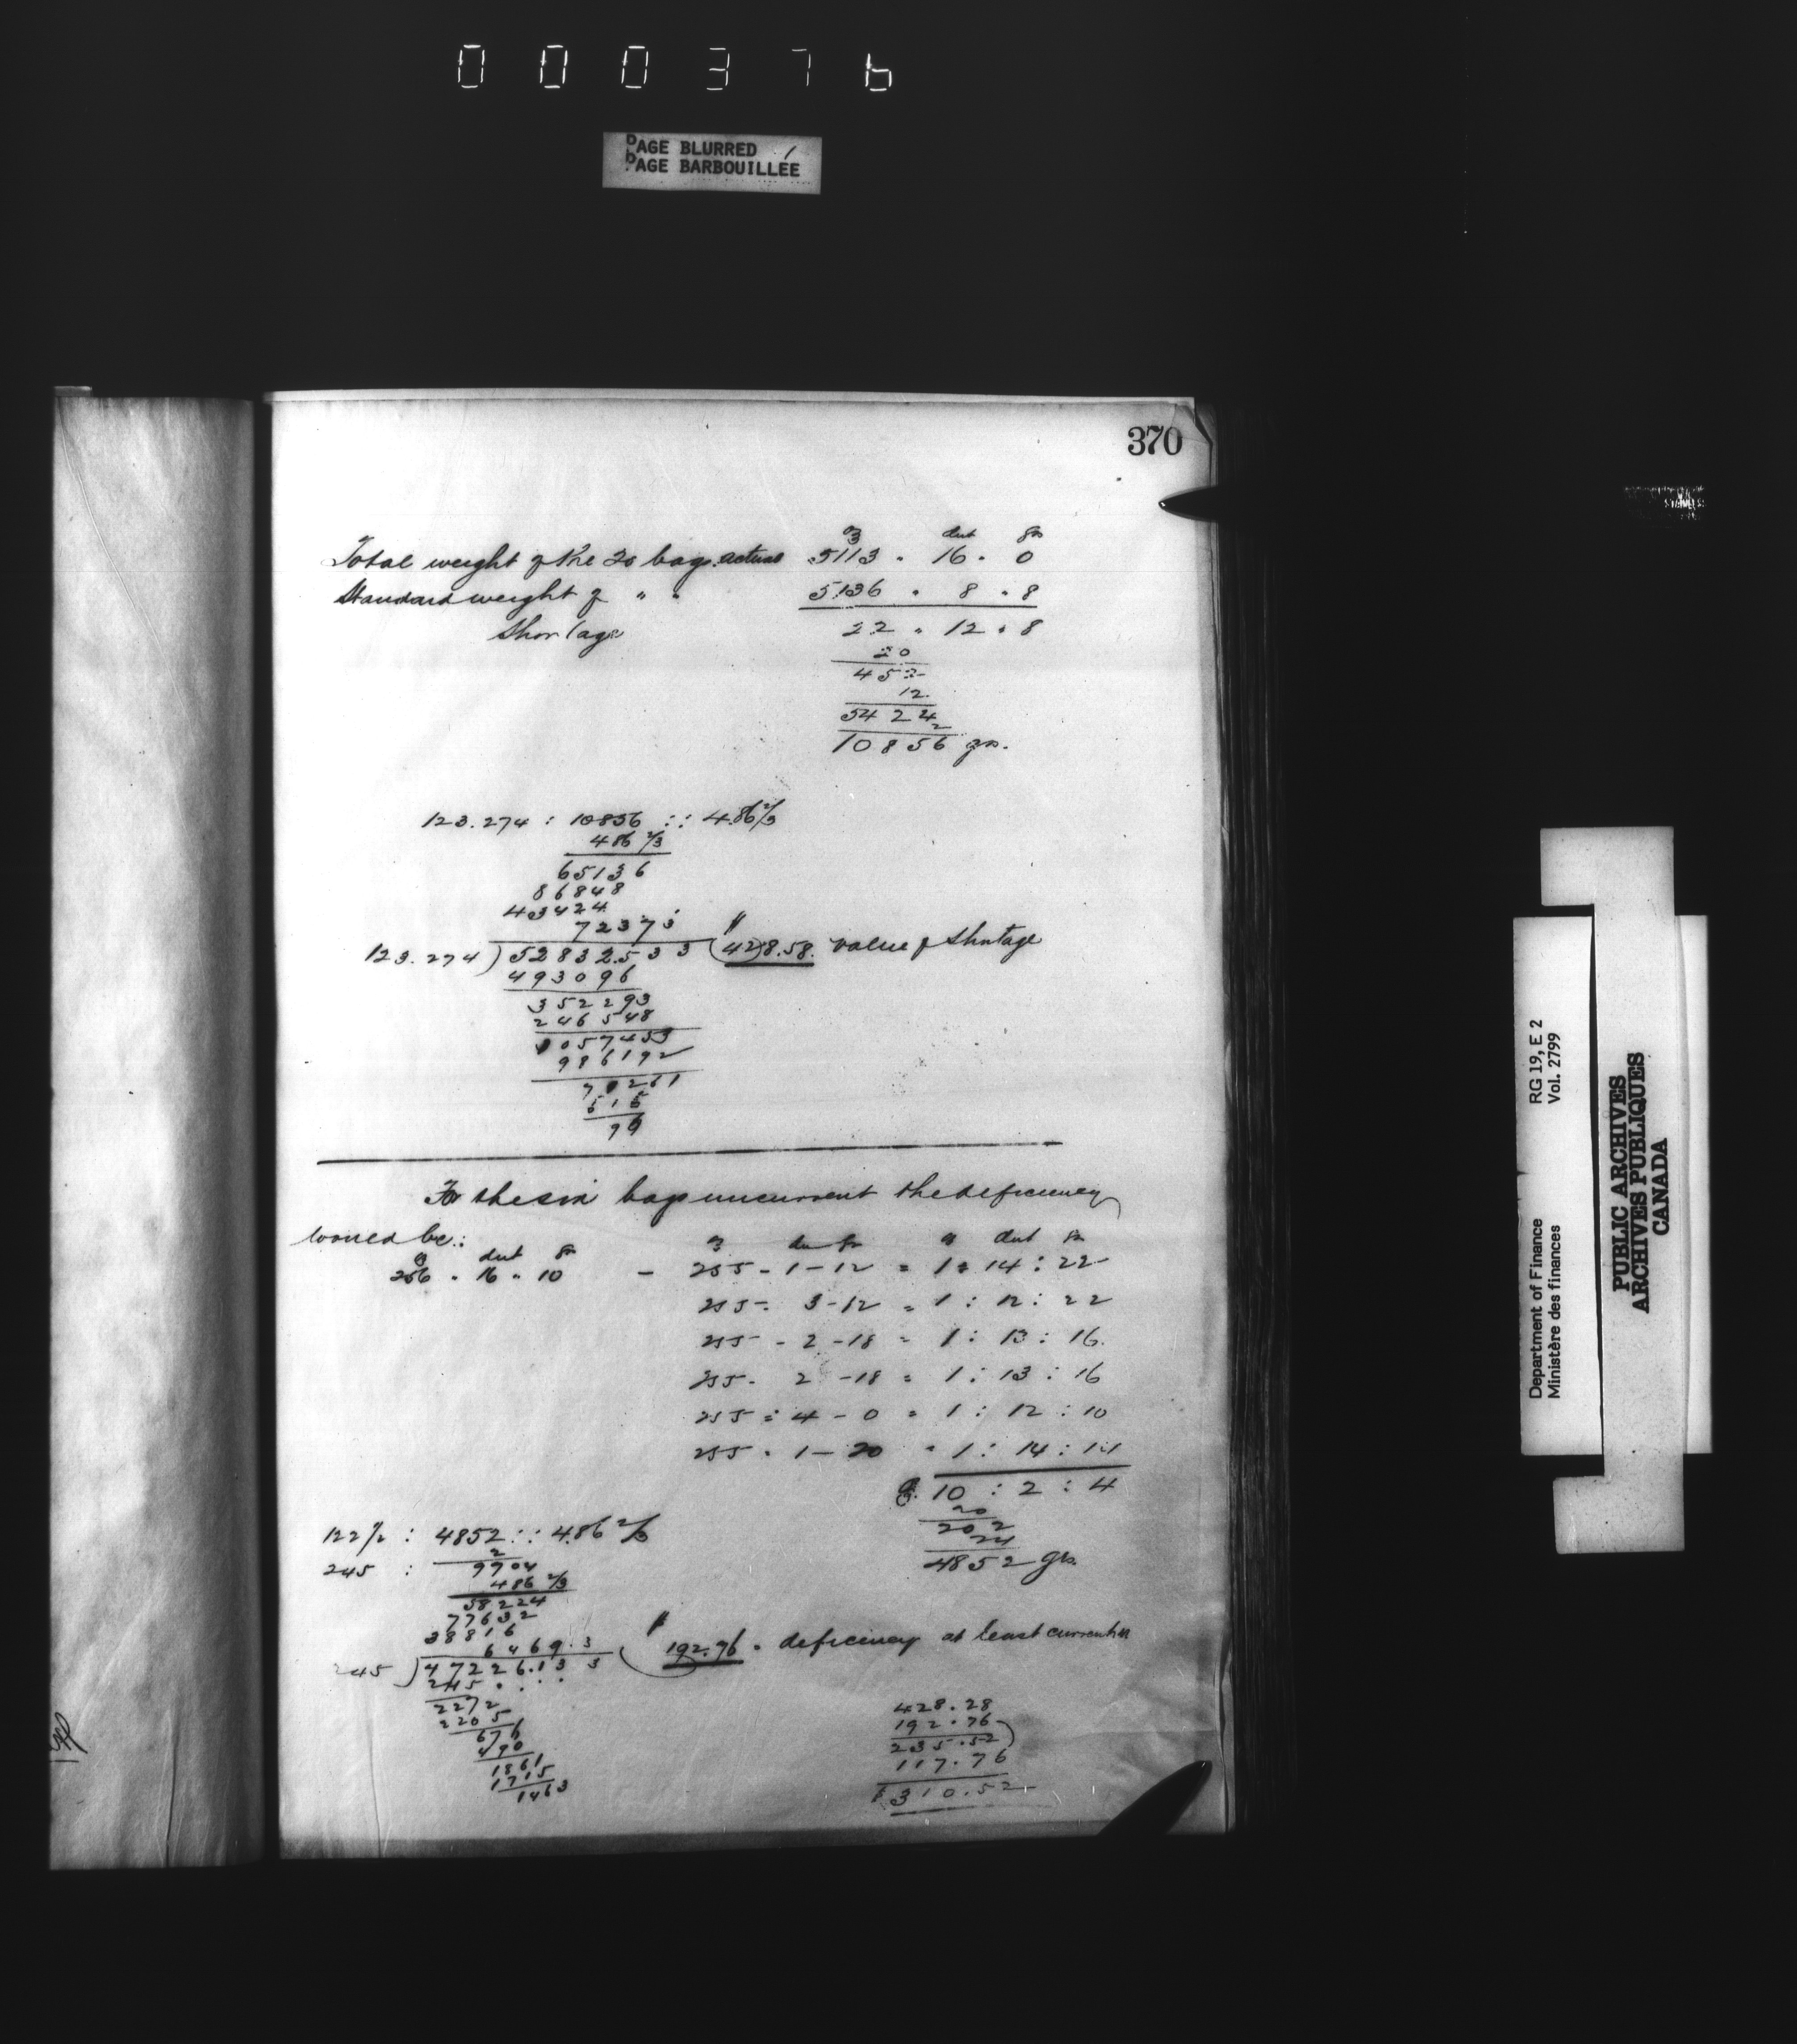 000376
PAGE BLURRED
PAGE BARBOUILLÉE
370
oz dwt gr
Total weight of the 20 bags actual 5113 " 16 " 0
Standard weight of " " 5136 " 8 " 8
Shortage 22 " 12 " 8
20
452
12
5424
2
10856 grs.
123.274 : 10856 :: 4.86 2/3
486 2/3
65136
86848
43424
72373
123.274 ) 5283253 3 ( $ 428.58. value of shortage
493096
352293
246548
1057453
986192
71261
616
96
For the six bags uncurrent the deficiency
would be:
oz dwt gr oz dwt gr oz dwt gr
256 " 16 " 10 – 255 - 1 - 12 = 1 : 14 : 22
255 - 3 - 12 = 1 : 12 : 22
255 - 2 - 18 = 1 : 13 : 16
255 - 2 - 18 = 1 : 13 : 16
255 : 4 - 0 = 1 : 12 : 10
255 - 1 - 20 = 1 : 14 : 14
oz. 10 : 2 : 4
20
202
24
4852 grs.
122 1/2 : 4852 :: 4.86 2/3
2
245 : 9704
486 2/3
58224
77632
38816
6469.3
245 ) 47226.13 3 ( $ 192.76 = deficiency at least current wt
245
2272
2205
676
490
1861
1715
1463
428.28
192.76
235.52
117.76
$ 310.52
RG 19, E 2
Vol. 2799
Department of Finance
Ministère des finances
PUBLIC ARCHIVES
ARCHIVES PUBLIQUES
CANADA